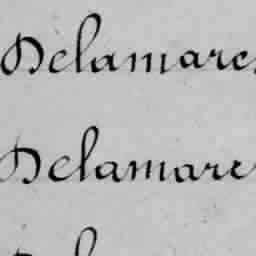 Delamare
Delamare